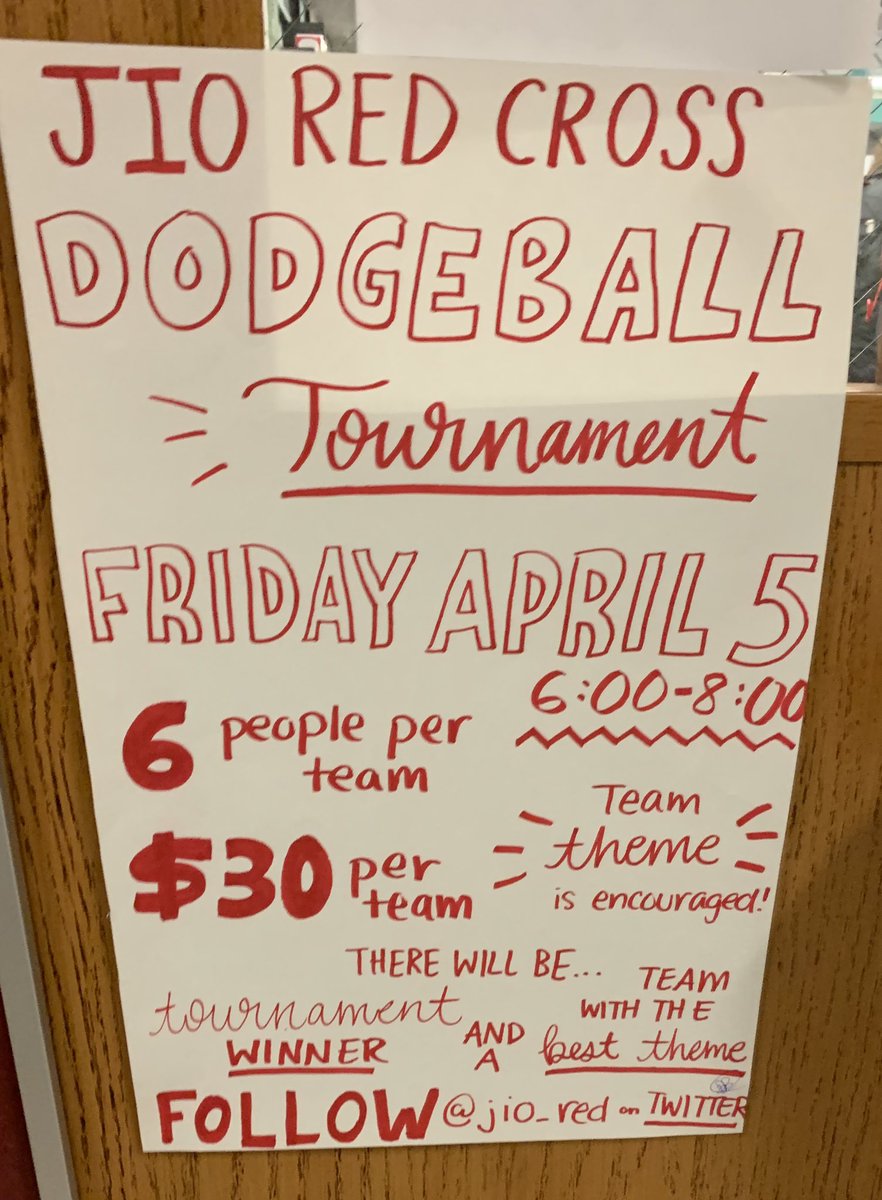 JIO RED CROSS
DODGEBALL
Tournament
FRIDAY APRIL 5
6:00-8:00
6 people per
team
$30 per
team
Team
theme
is encouraged!
THERE WILL BE...
tournament
WINNER
AND
A
TEAM
WITH THE
best theme
FOLLOW @jio_red on TWITTER